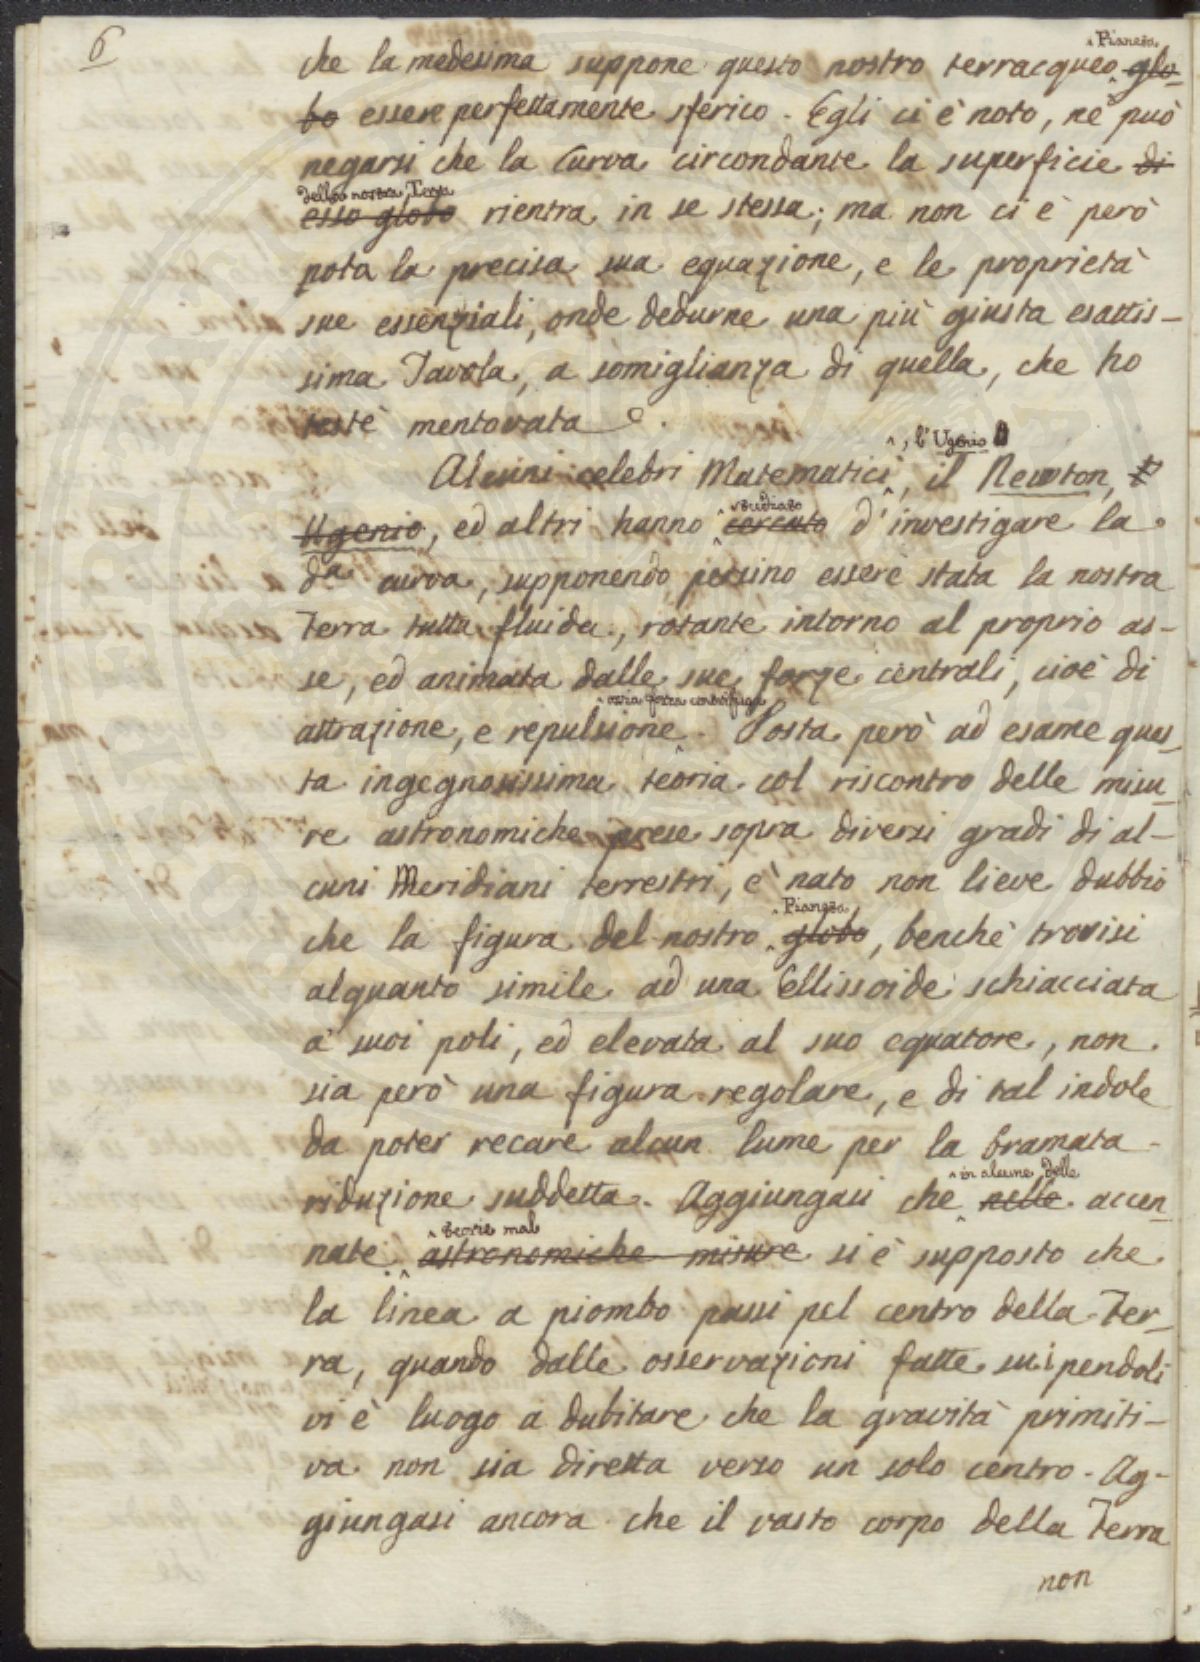 6
^ Pianeta
che la medesima suppone questo nostro terracqueo glo-
bo essere perfettamente sferico. Egli ci è noto, nè può
negarsi che la Curva circondante la superficie di
della nostra Terra
esso globo rientra in se stessa; ma non ci è però
nota la precisa sua equazione, e le proprietà
sue essenziali, onde dedurne una più giusta esattis-
sima Tavola, a somiglianza di quella, che ho
testè mentovata.
^, l'Ugenio
Alcuni celebri Matematici, il Newton,
^ studiato
Ugenio, ed altri hanno cercato d'investigare la
da curva, supponendo persino essere stata la nostra
Terra tutta fluida, rotante intorno al proprio as-
se, ed animata dalle sue forze centrali, cioè di
^ ossia forza centrifuga
attrazione, e repulsione. Posta però ad esame ques-
ta ingegnosissima teoria col riscontro delle misu-
re astronomiche prese sopra diversi gradi di al-
cuni Meridiani terrestri, è nato non lieve dubbio
^ Pianeta
che la figura del nostro globo, benchè trovisi
alquanto simile ad una Ellissoide schiacciata
a' suoi poli, ed elevata al suo equatore, non
sia però una figura regolare, e di tal indole
da poter recare alcun lume per la bramata
^ in alcune delle
riduzione suddetta. Aggiungasi che nelle accen-
^ teorie mal
nate astronomiche misure si è supposto che
la linea a piombo passi pel centro della Ter-
ra, quando dalle osservazioni fatte sui pendoli
vi è luogo a dubitare che la gravità primiti-
va non sia diretta verso un solo centro. Ag-
giungasi ancora che il vasto corpo della Terra
non